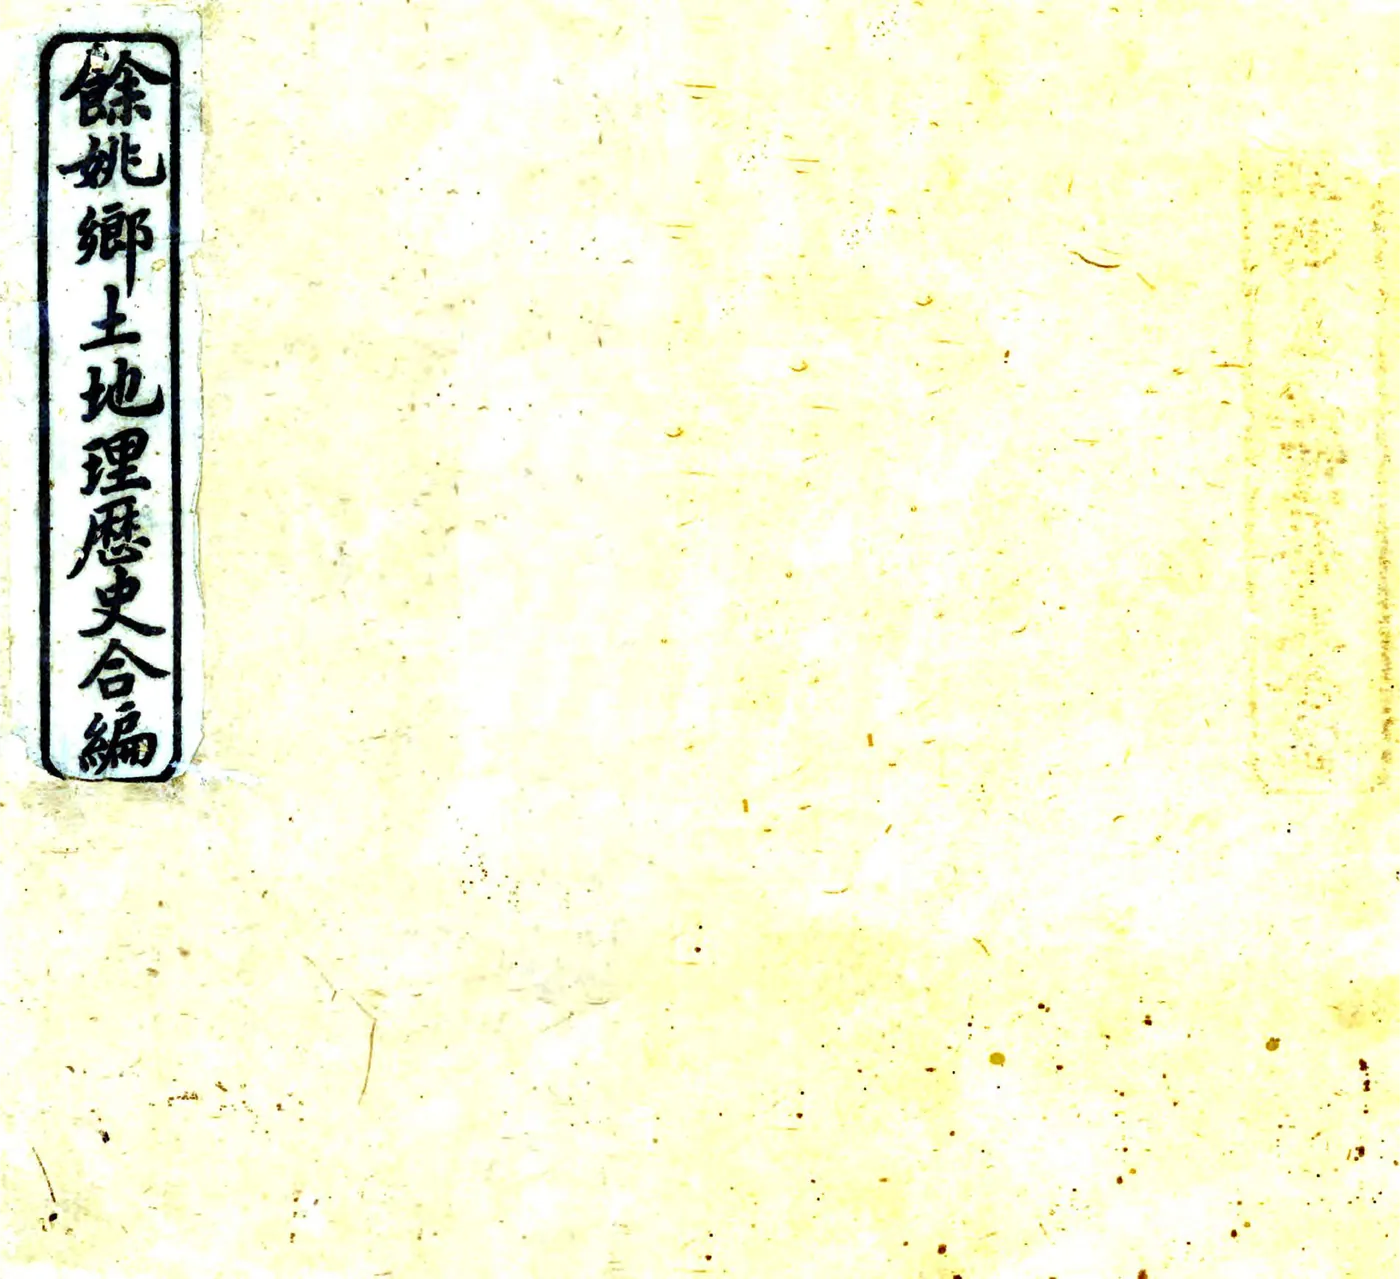 餘姚鄉土地理歷史合編